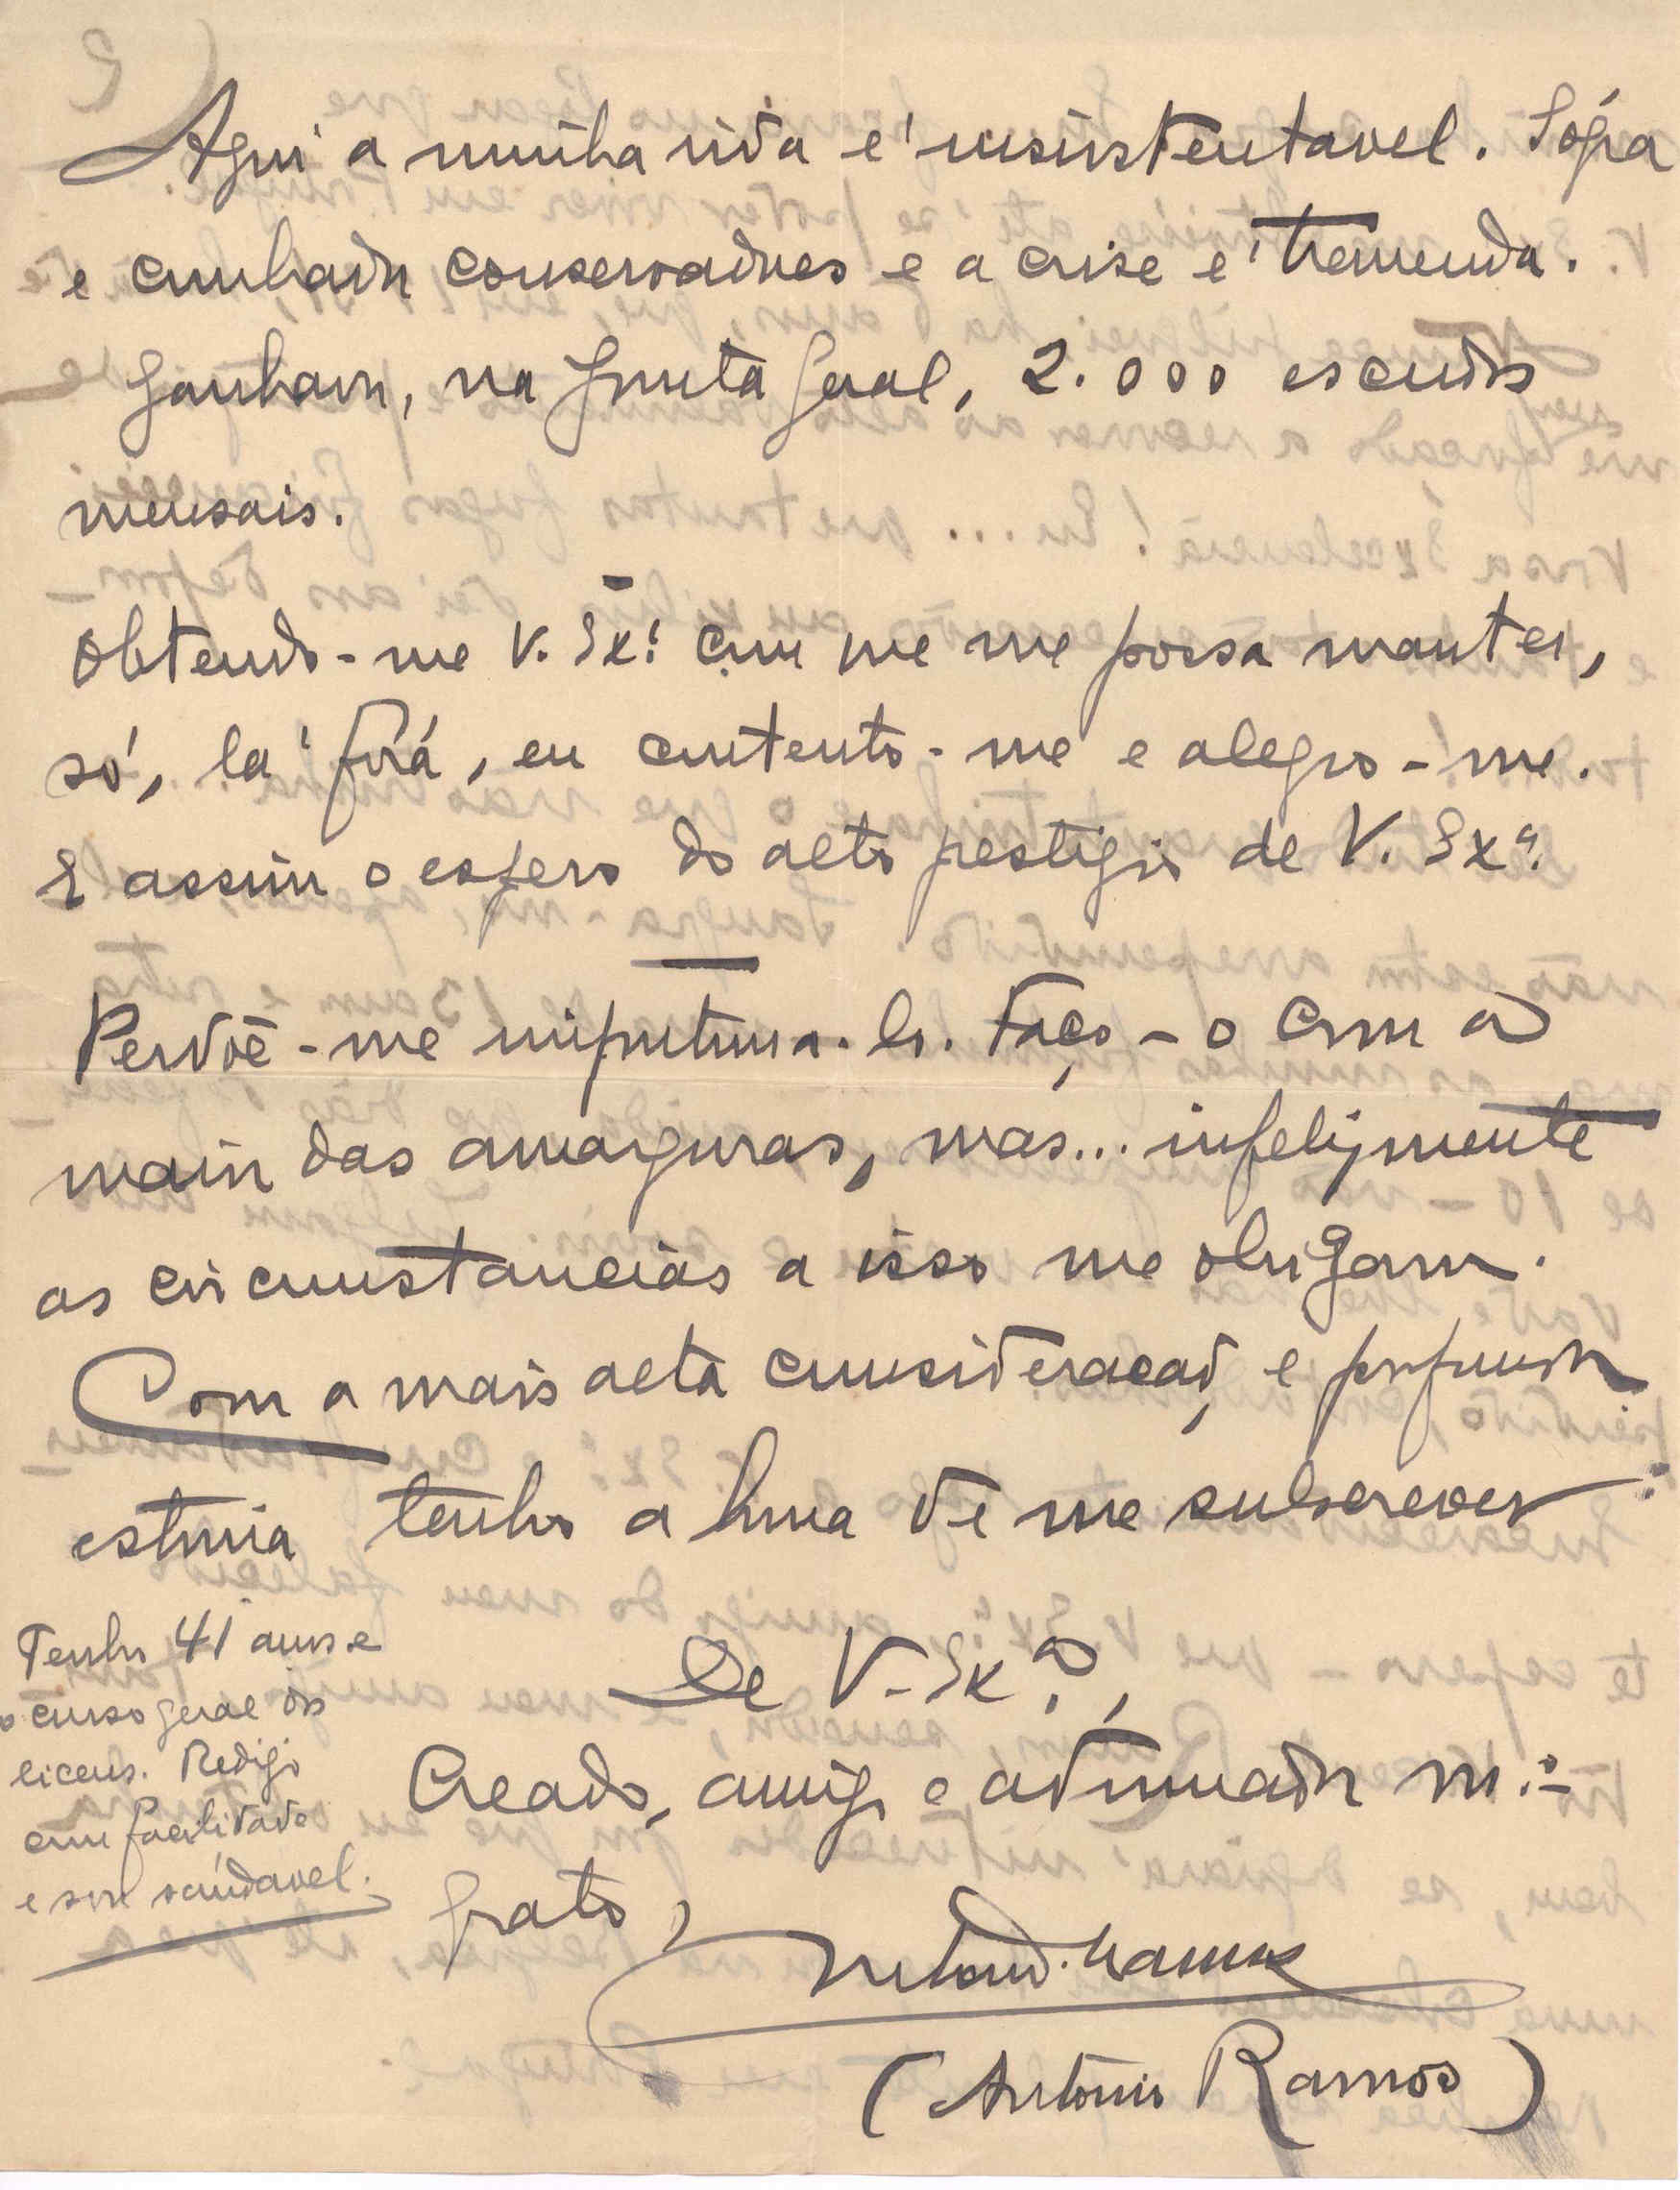 Aqui a minha vida é insustentavel. Sógra
e cunhado conservadores e a crise é tremenda.
Ganham, na Junta Geral, 2.000 escudos
mensais.
Obtendo-me V. Exª com que me possa manter,
só, lá fóra, eu contento-me e alegro-me.
E assim o espero do alto prestigio de V. Exª.
Perdoê-me importuna-lo. Faço-o com a
maior das amarguras, mas... infelizmente
as circumstancias a isso me obrigam.
Com a mais alta consideração e profunda
estima tenho a honra de me subscrever:
De V. Exª,
Creado, amigo e admirador m.to
grato,
António Ramos
(António Ramos)
Tenho 41 anos e
o curso geral dos
liceus. Redijo
com facilidade
e sou saúdavel.